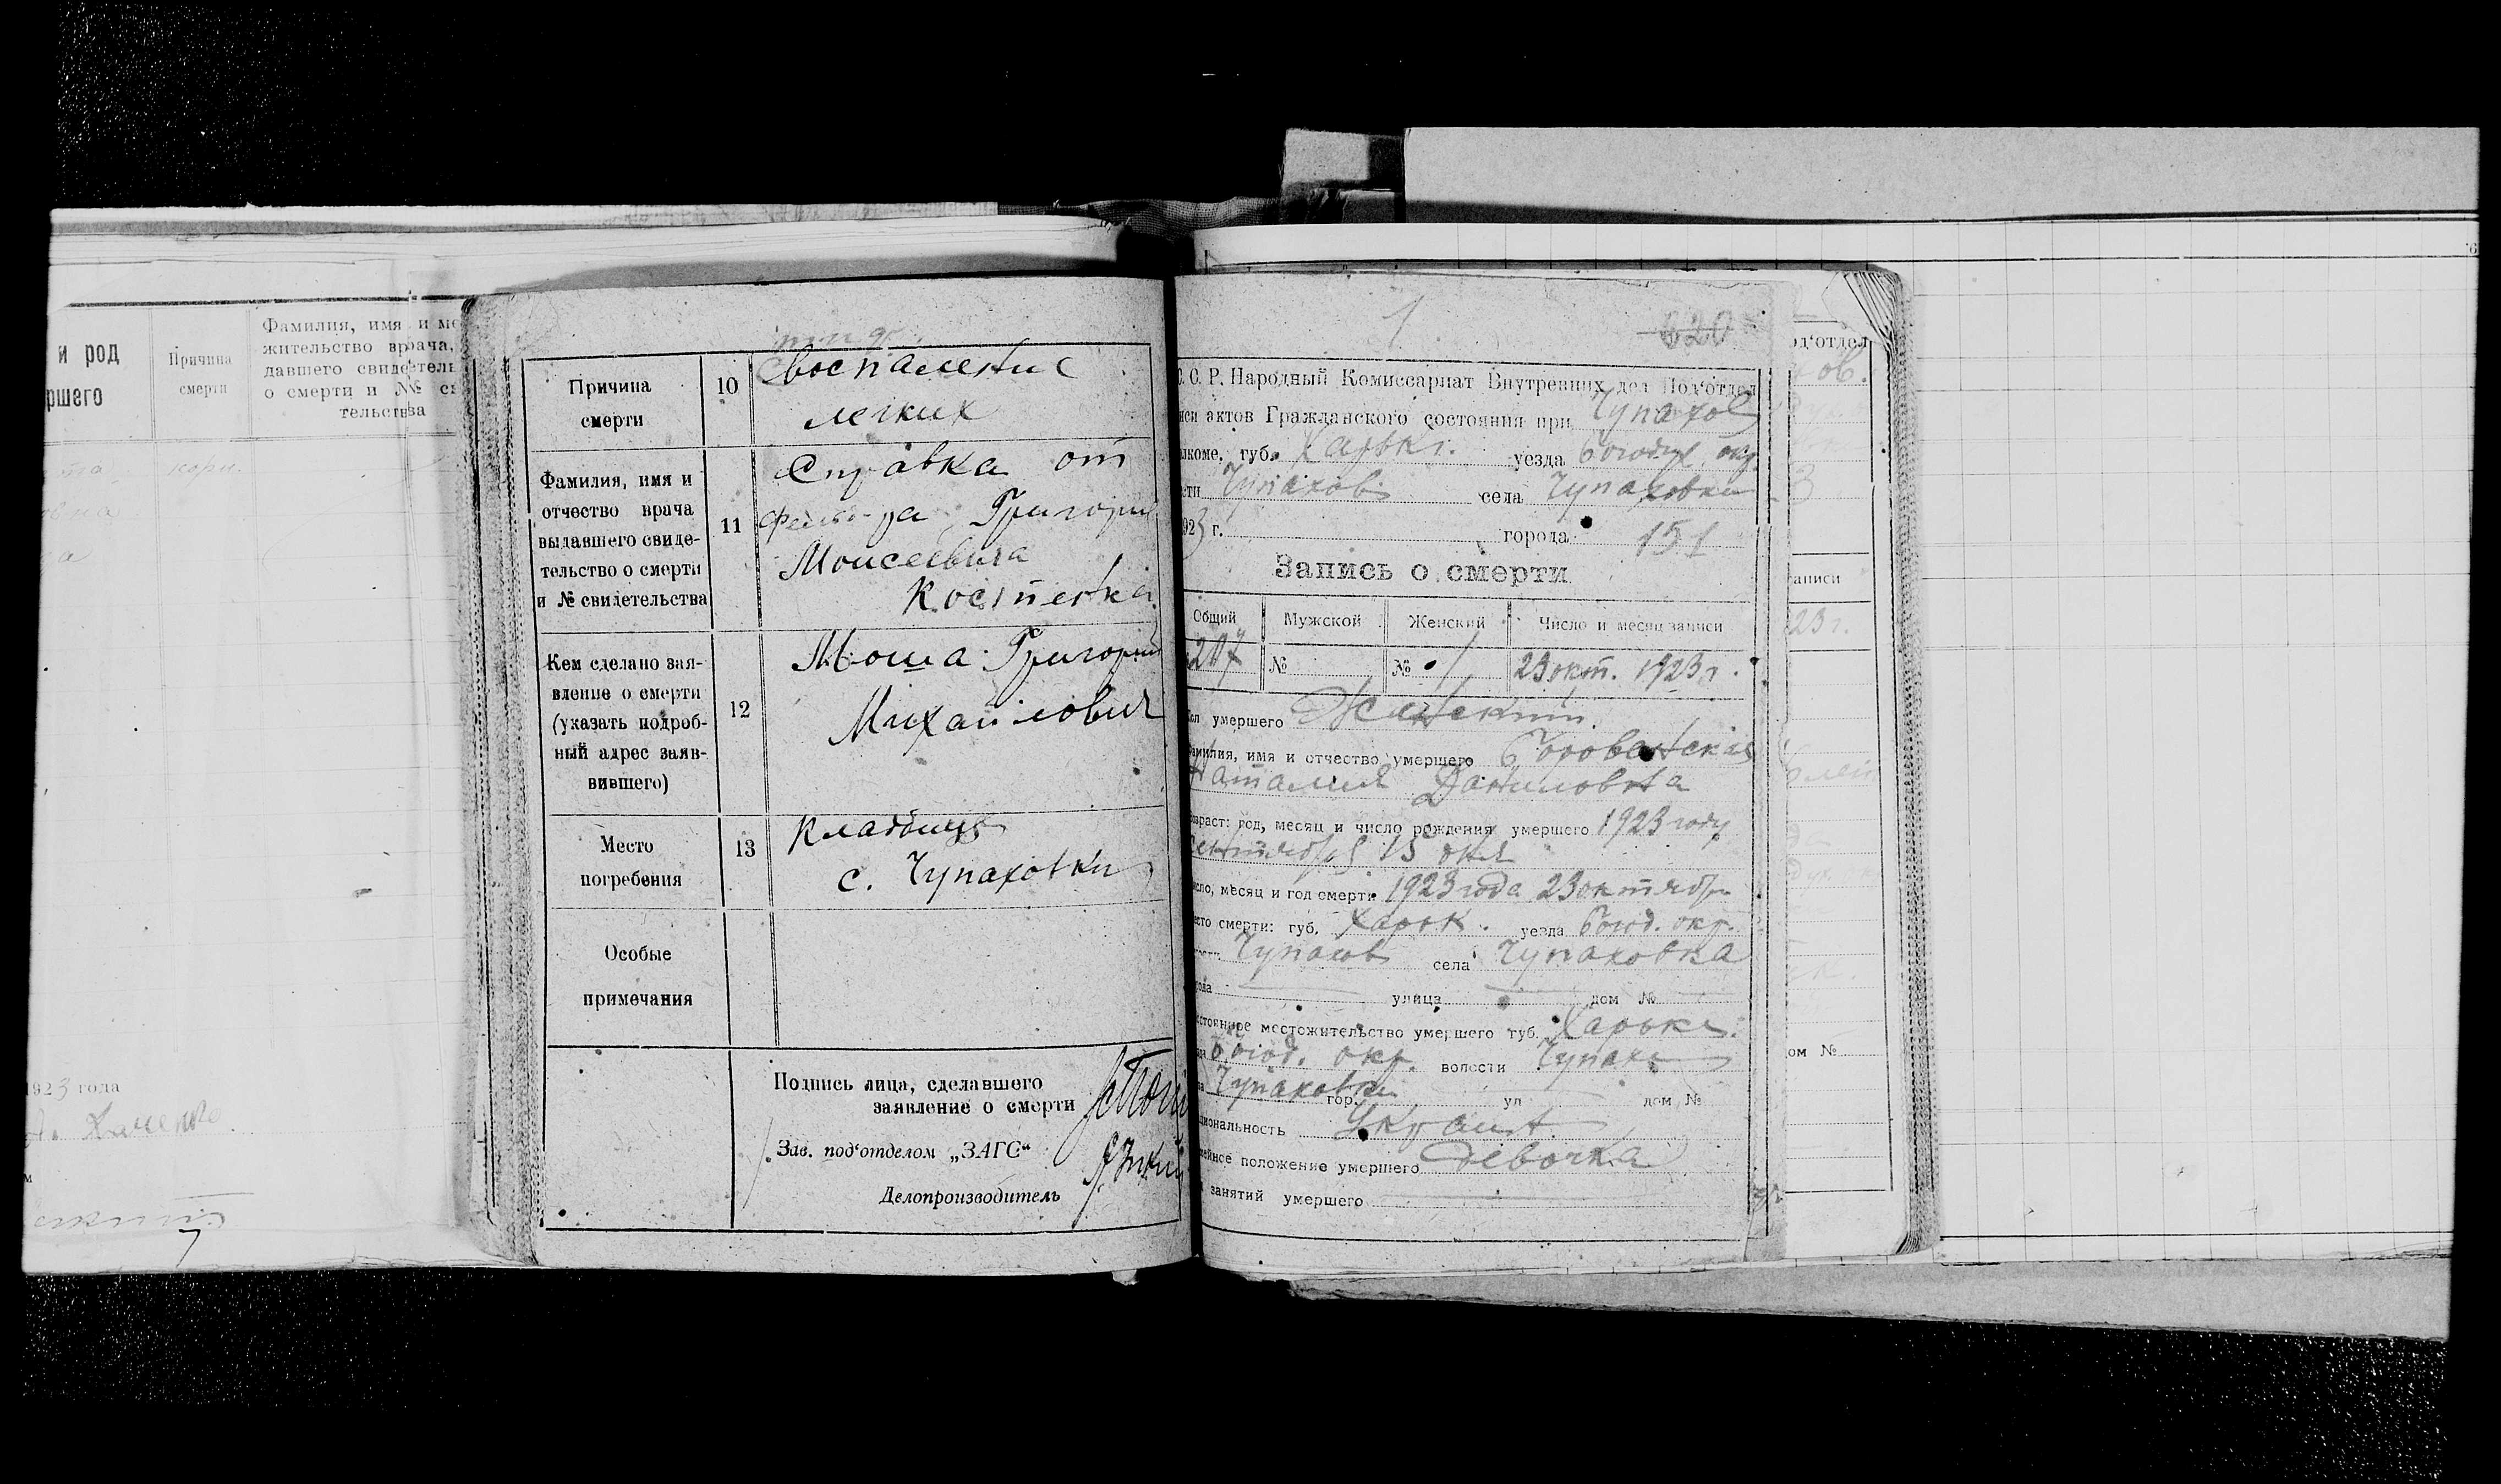 и род
ршего
Причина
смерти
Фамилия, имя и ме
жительство врача,
давшего свидетель
о смерти и № св
тельства
корн.
1923 года
Причина
смерти
10
Воспаление
легких
Фамилия, имя и
отчество врача
выдавшего свиде-
тельство о смерти
и № свидетельства
11
Справка от
Григория
Моисеевича
Костенка
Кем сделано зая-
вление о смерти
(указать подроб-
ный адрес заяв-
вившего)
12
Моша Григорий
Михайлович
Место
погребения
13
Кладбище
с. Чупаховки
Особые
примечания
Подпись лица, сделавшего
заявление о смерти
Зав. под‘отделом „ЗАГС“
Делопроизводитель
1
620
С. С. Р. Народный Комиссариат Внутренних дел Под‘отдел
иси актов Гражданского состояния при Чупахов
лкоме, губ. Харьк. уезда Богодух. окр.
сти Чупахов села Чупаховки
923 г. города 151
Запись о смерти
Общий Мужской Женский Число и месяц записи
207 № № 1 23 окт. 1923 г.
ол умершего Женский
амилия, имя и отчество умершего
Наталия Даниловна
озраст: год, месяц и число рождения умершего 1923 году
сентября 15 дня
исло, месяц и год смерти 1923 года 23 октября
есто смерти: губ. Харьк. уезда Богод. окр.
Чупахов села Чупаховка
ода улица дом №
стоянное местожительство умершего губ. Харьк.
да Богод. окр. волости Чупах.
ла Чупаховки гор. ул дом №
циональность Украин.
ейное положение умершего Девочка
занятий умершего
од‘отдел
ов.
аписи
23 г.
ом №